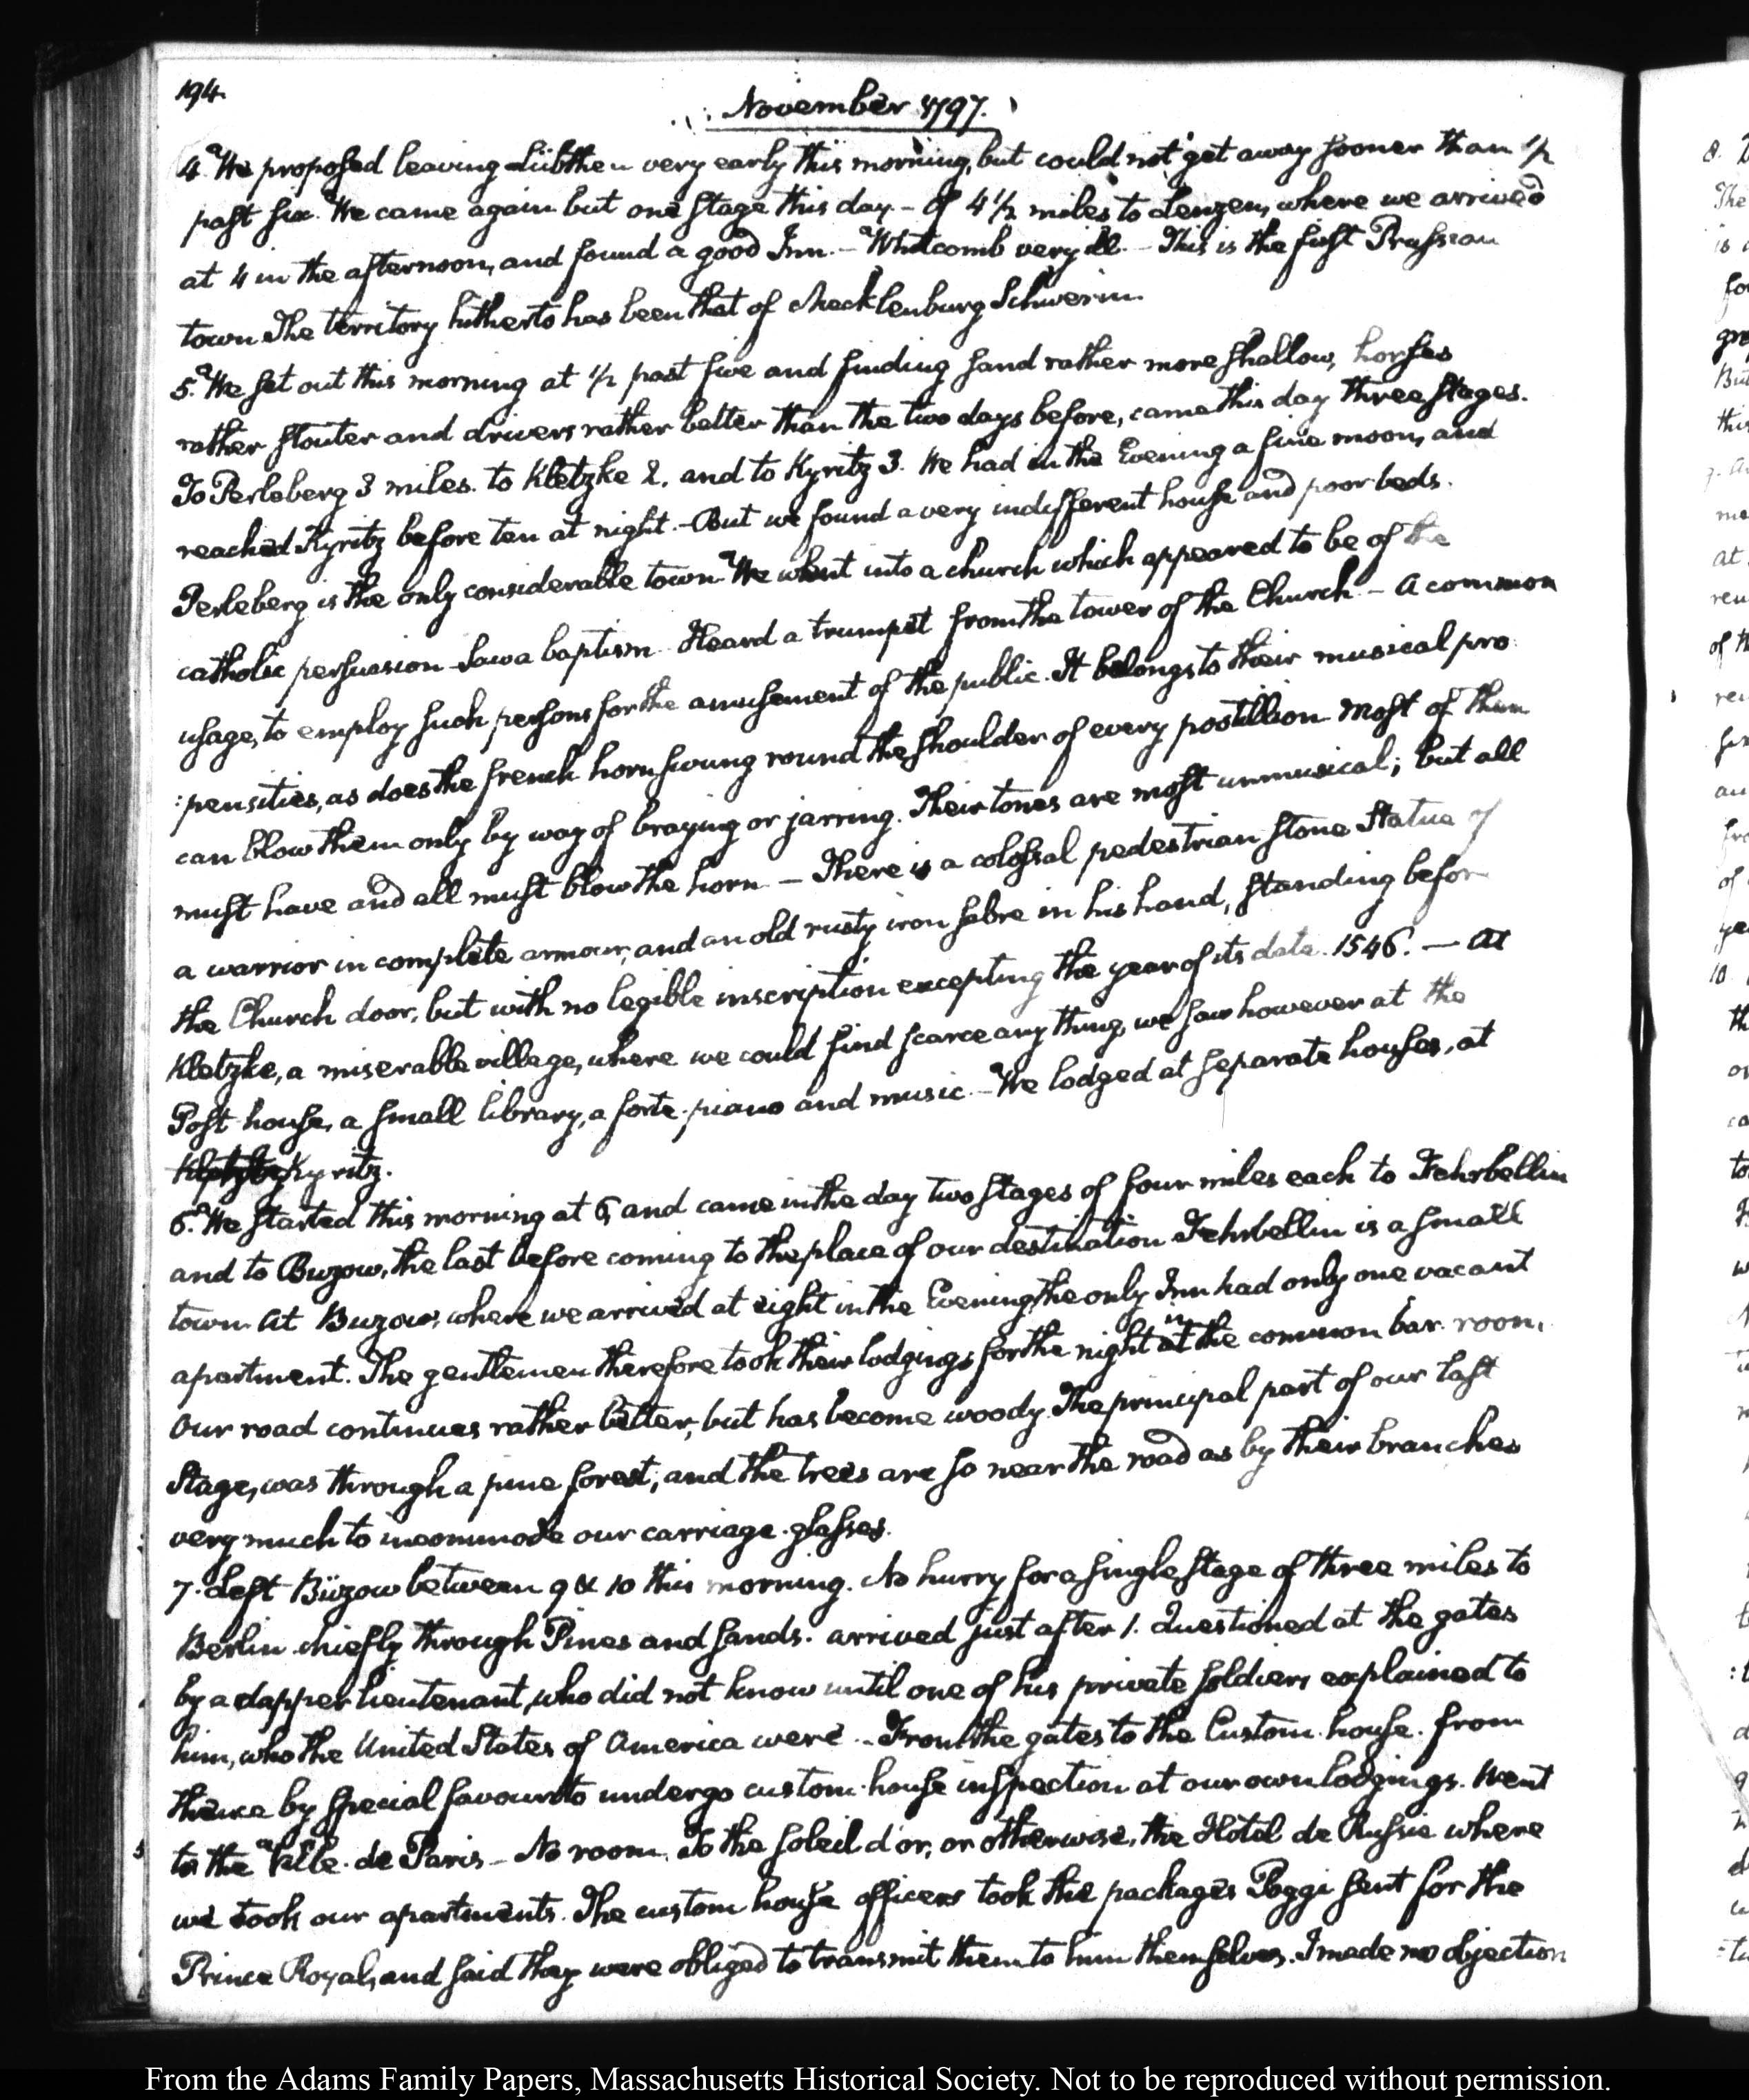 194.
November 1797.
4. We proposed leaving Lübthen very early this morning, but could not get away sooner than 1/2
past six. We came again but one stage this day - of 4 1/2 miles to Lenzen, where we arrived
at 4 in the afternoon, and found a good Inn. - Whitcomb very ill. - This is the first Prussian
town. The territory hitherto has been that of Mecklenburg Schwerin.
5. We set out this morning at 1/2 past five and finding sand rather more shallow, horses
rather stouter and drivers rather better than the two days before, came this day three stages.
To Perleberg 3 miles. to Kletzke 2. and to Kyritz 3. We had in the Evening a fine moon, and
reached Kyritz before ten at night. - But we found a very indifferent house and poor beds.
Perleberg is the only considerable town. We went into a church which appeared to be of the
catholic persuasion. Saw a baptism. Heard a trumpet from the tower of the Church. - A common
usage, to employ such persons for the amusement of the public. It belongs to their musical pro
:pensities, as does the french horn swung round the shoulder of every postillion. Most of them
can blow them only by way of braying or jarring. Their tones are most unmusical; but all
must have and all must blow the horn. - There is a colossal pedestrian stone Statue of
a warrior in complete armour, and an old rusty iron sabre in his hand, standing before
the Church door, but with no legible inscription excepting the year of its date. 1546. - At
Kletzke, a miserable village, where we could find scarce any thing, we saw however at the
Post-house, a small library, a forte-piano and music. - We lodged at separate houses, at
Kletzke Kyritz.
6. We started this morning at 6, and came in the day two stages of four miles each to Fehrbellin
and to Buzow, the last before coming to the place of our destination. Fehrbellin is a small
town. At Buzow, where we arrived at eight in the Evening, the only Inn had only one vacant
apartment. The gentlemen therefore took their lodgings for the night at in the common bar-room.
Our road continues rather better, but has become woody. The principal part of our last
Stage, was through a pine forest, and the trees are so near the road as by their branches
very much to incommode our carriage-glasses.
7. Left Büzow between 9 & 10 this morning. No hurry for a single stage of three miles to
Berlin chiefly through Pines and sands. arrived just after 1. Questioned at the gates
by a dapper lieutenant, who did not know until one of his private soldiers explained to
him, who the United States of America were. - From the gates to the Custom-house. from
thence by special favour to undergo custom-house inspection at our own lodgings. Went
to the Ville de Paris - No room. To the Soleil d'or, or otherwise, the Hotel de Russie where
we took our apartments. The custom house officers took the packages Poggi sent for the
Prince Royal, and said they were obliged to transmit them to him themselves. I made no objection